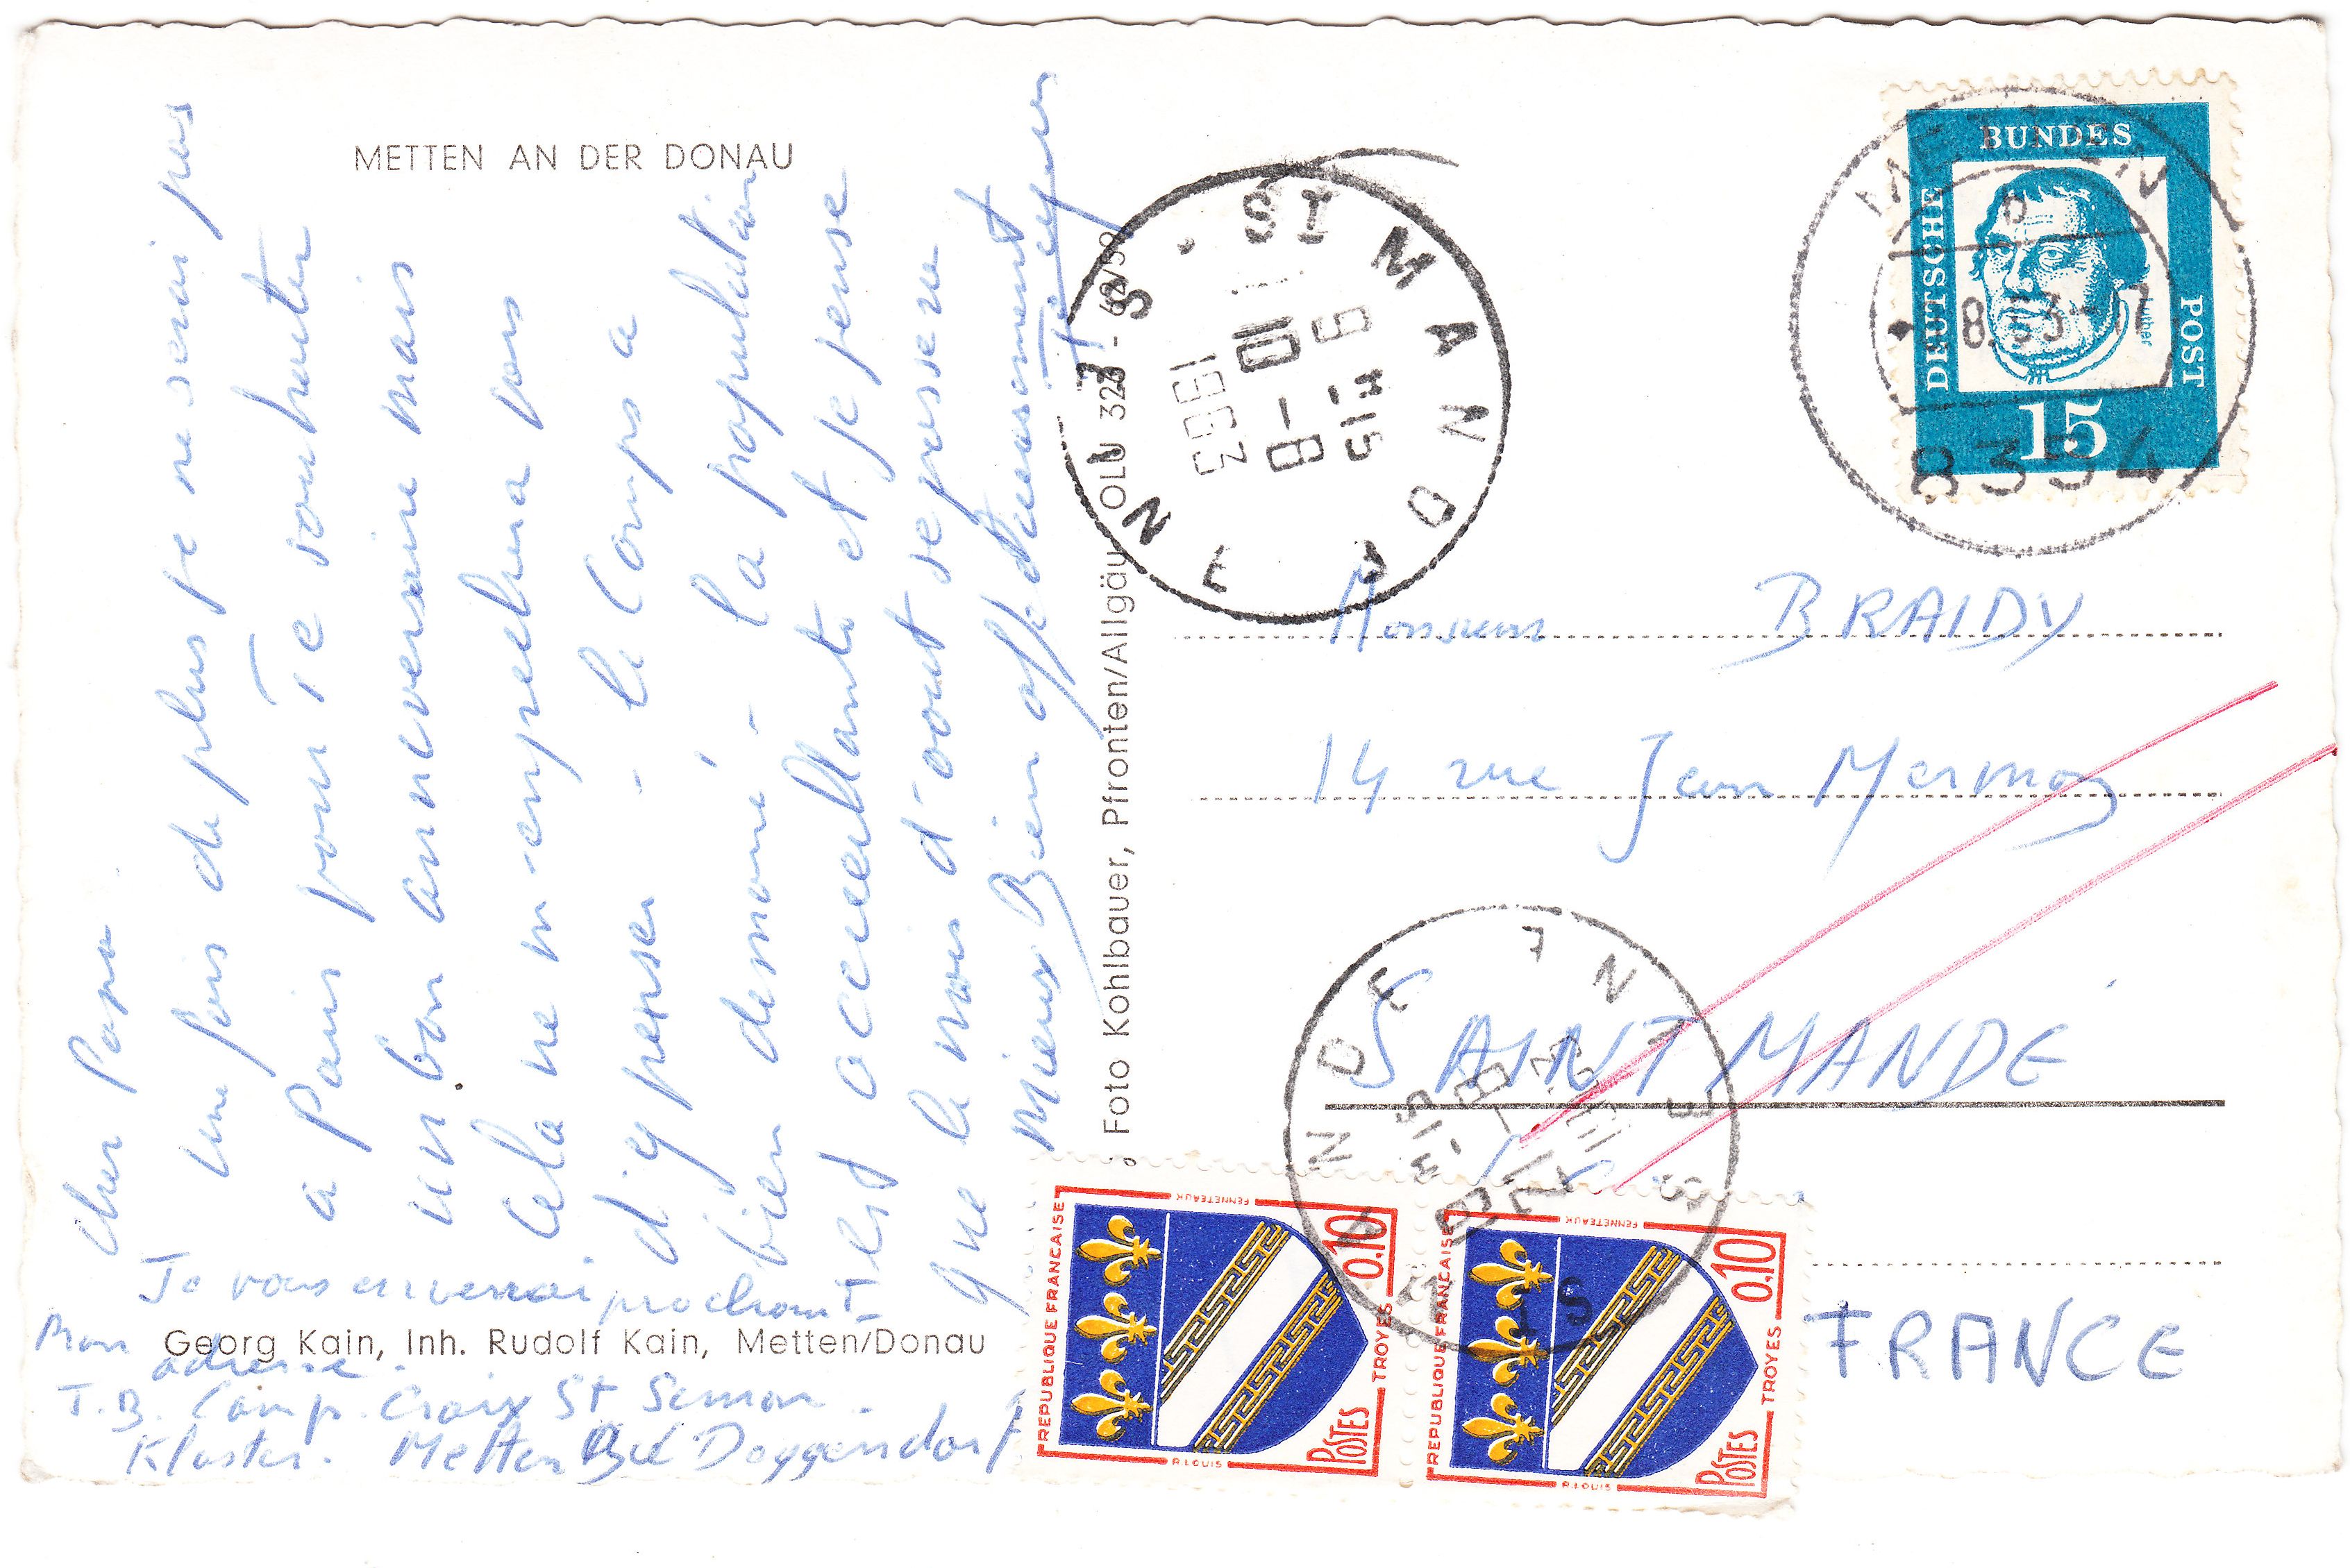 METTEN AN DER DONAU
Cher Papa
Une fois de plus je ne serai pas
à Paris pour te souhaiter
un bon anniversaire mais
cela ne m'empêchera pas
d'y penser - le Camps a
bien démarré, la population
est acceuillante et je pense
que le mois d'aout se passera
mieux Bien affectueusement
Je vous enverrai prochaint
mon adresse.
T.B. Camp. Croix St Simon.
Kloster. Metten Bei Deggendorf
Georg Kain, Inh. Rudolf Kain, Metten/Donau
Foto Kohlbauer, Pfronten/Allgäu
ST MANDE
SEINE
9 H15
10 - 8
1963
DEUTSCHE BUNDESPOST
Luther
15
METTEN
8354
Monsieur BRAIDY
14 rue Jean Mermoz
SAINT MANDÉ
FRANCE
ST MANDE
SEINE
REPUBLIQUE FRANCAISE
FENNETEAUX
0,10
TROYES
POSTES
R.LOUIS
REPUBLIQUE FRANCAISE
FENNETEAUX
0,10
TROYES
POSTES
R.LOUIS